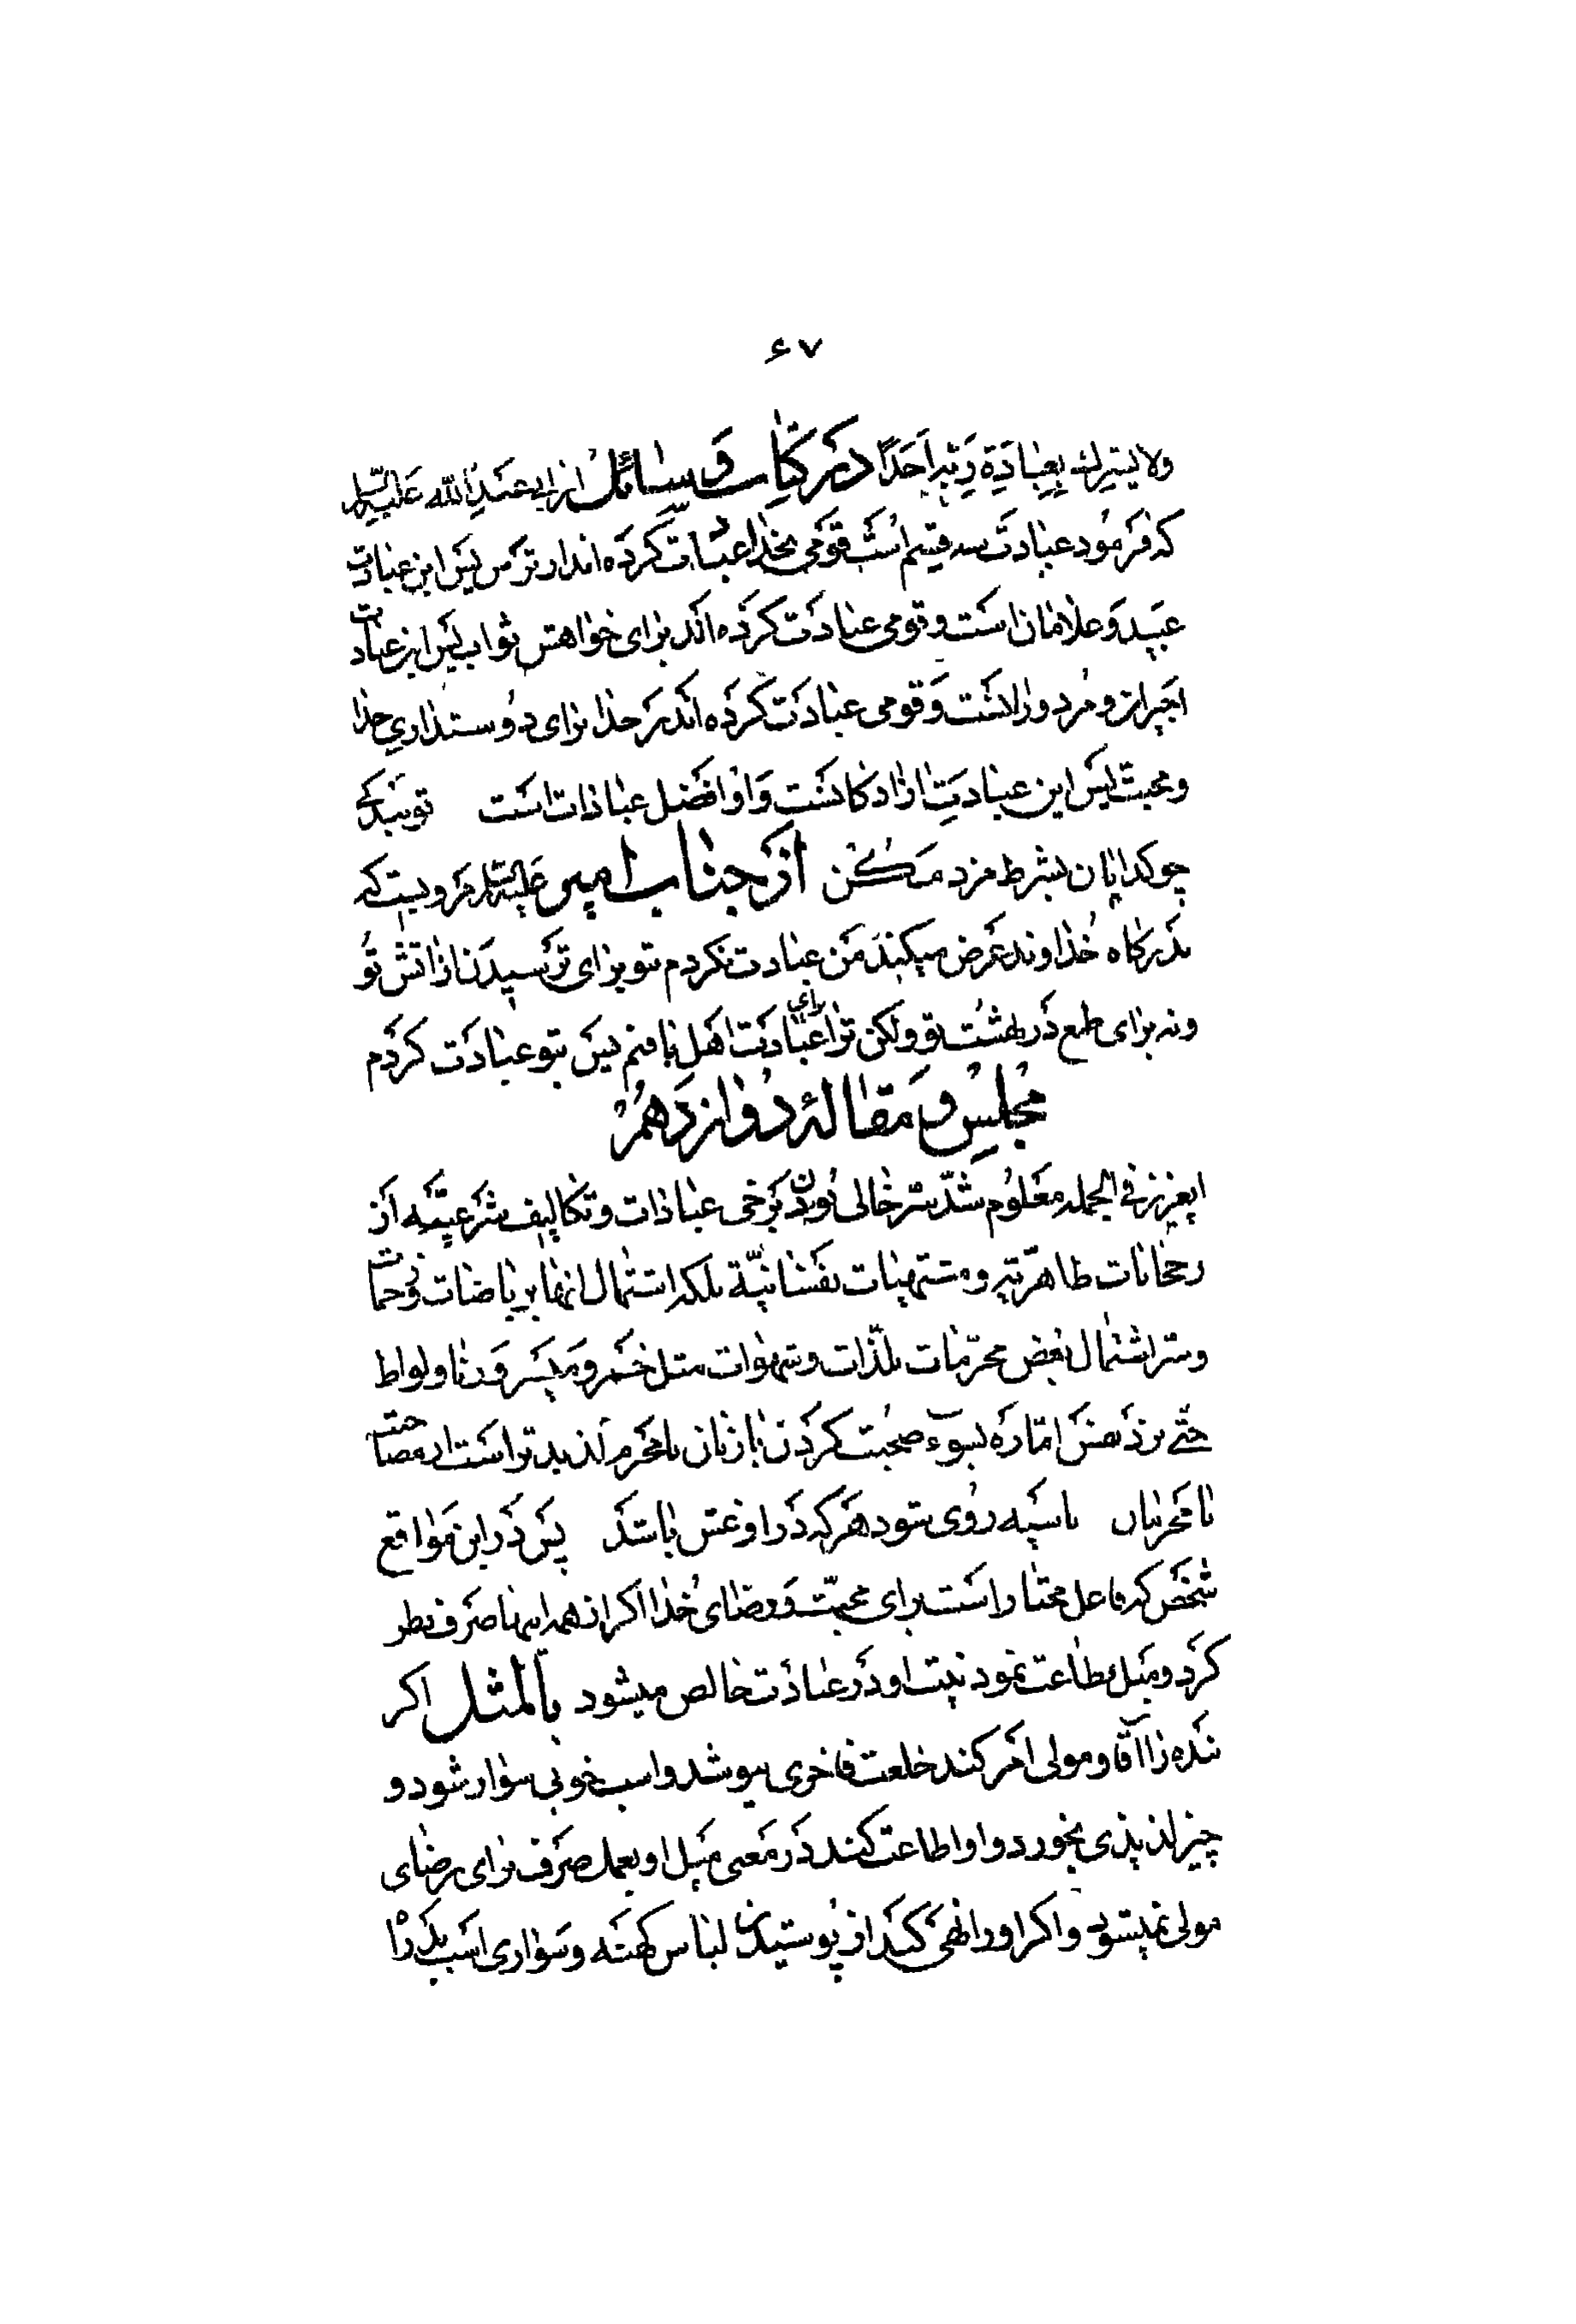 ۶۷
ولا یشرك بِعِبادَةِ رَبِّهِ اَحَدًا در كتاب وسائل از ابی عبدالله علیه السلم
که فرمود عبادت سه قسم است قومی بخدا عبادت کرده اند از ترس پس این عبادت
عبید و غلامان است و قومی عبادت کرده اند برای خواهش ثواب پس این عبادت
اجیران و مُزد وران است و قومی عبادت کرده اند بر خدا برای دوستداری خدا
و محبت پس این عبادت ازادکانست و او افضل عبادات است تو بندکی
چو کدایان بشرط مزد مکن از جناب امیر علیه السلم مرویست که
بدرکاه خداوند عرض میکند من عبادت نکردم بتو برای ترسیدن از اتش تو
و نه برای طمع در بهشت تو ولکن ترا برای عبادت اهل یافتم پس بتو عبادت کردم
مجلس و مقالهٔ دوازدهم
ایعزیز فی الجمله معلوم شد سرّ خالی بودن برخی عبادات و تکالیف شرعیّه از
رجحانات ظاهریّه و مشتهیات نفسانیّة بلکه اشتمال انها بریاضات و زحمات
و سرّ اشتمال بعض محرّمات بلذّات و شهوات مثل خمر و میسر و زنا و لواط
حتّی نزد نفس امّاره بسوء صحبت کردن با زنان نامحرم لذیذتر است از مصاحبت
با محرمان تا سیه روی شود هر که در او غش باشد پس در این مواقع
شخص که فاعل مختار است برای محبّت و رضای خدا اکر از همه اینها صرف نظر
کرد و میل بطاعت نمود نیت او در عبادت خالص میشود بالمثل اکر
بنده را آقا و مولی امر کند خلعت فاخری بپوشد و اسب خوبی سوار شود و
چیز لذیذی بخورد و او اطاعت کند در معنی میل او بعمل صرف برای رضای
مولی نمیشود و اکر او را نهی کند از پوشیدن لباس کهنه و سواری اسب بد را